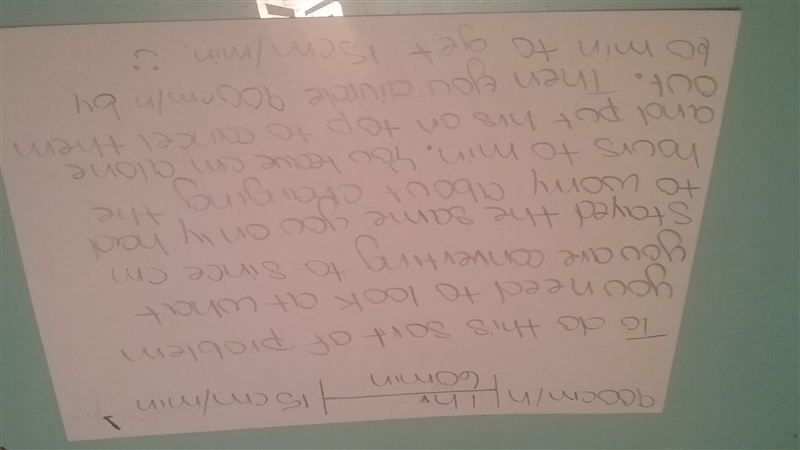 900cm/h | 1 hr | 15cm/min
60min
To do this sort of problem
you need to look at what
you are converting to since cm
stayed the same you only had
to worry about changing the
hours to min. You leave cm alone
and put hrs on top to cancel them
out. Then you divide 900cm/h by
60 min to get 15cm/min. :)